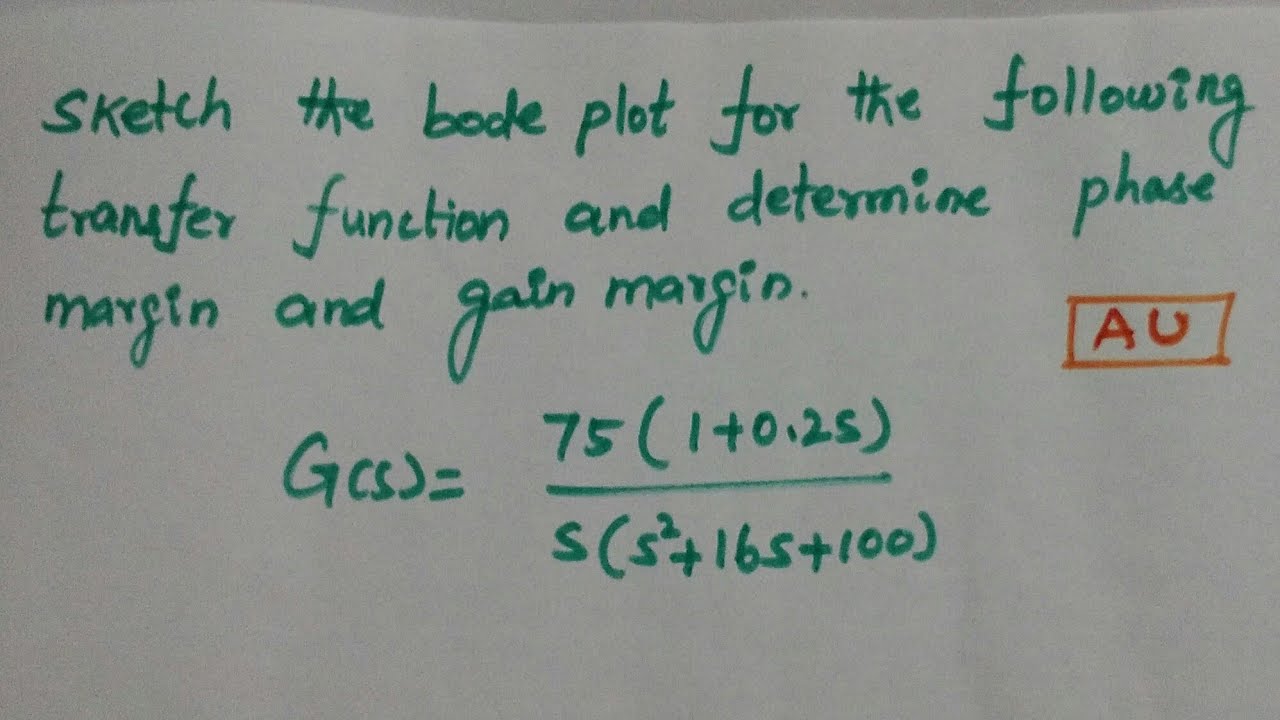 Sketch the bode plot for the following
transfer function and determine phase
margin and gain margin.
AU
G(s)= 75(1+0.2s)
s(s²+16s+100)